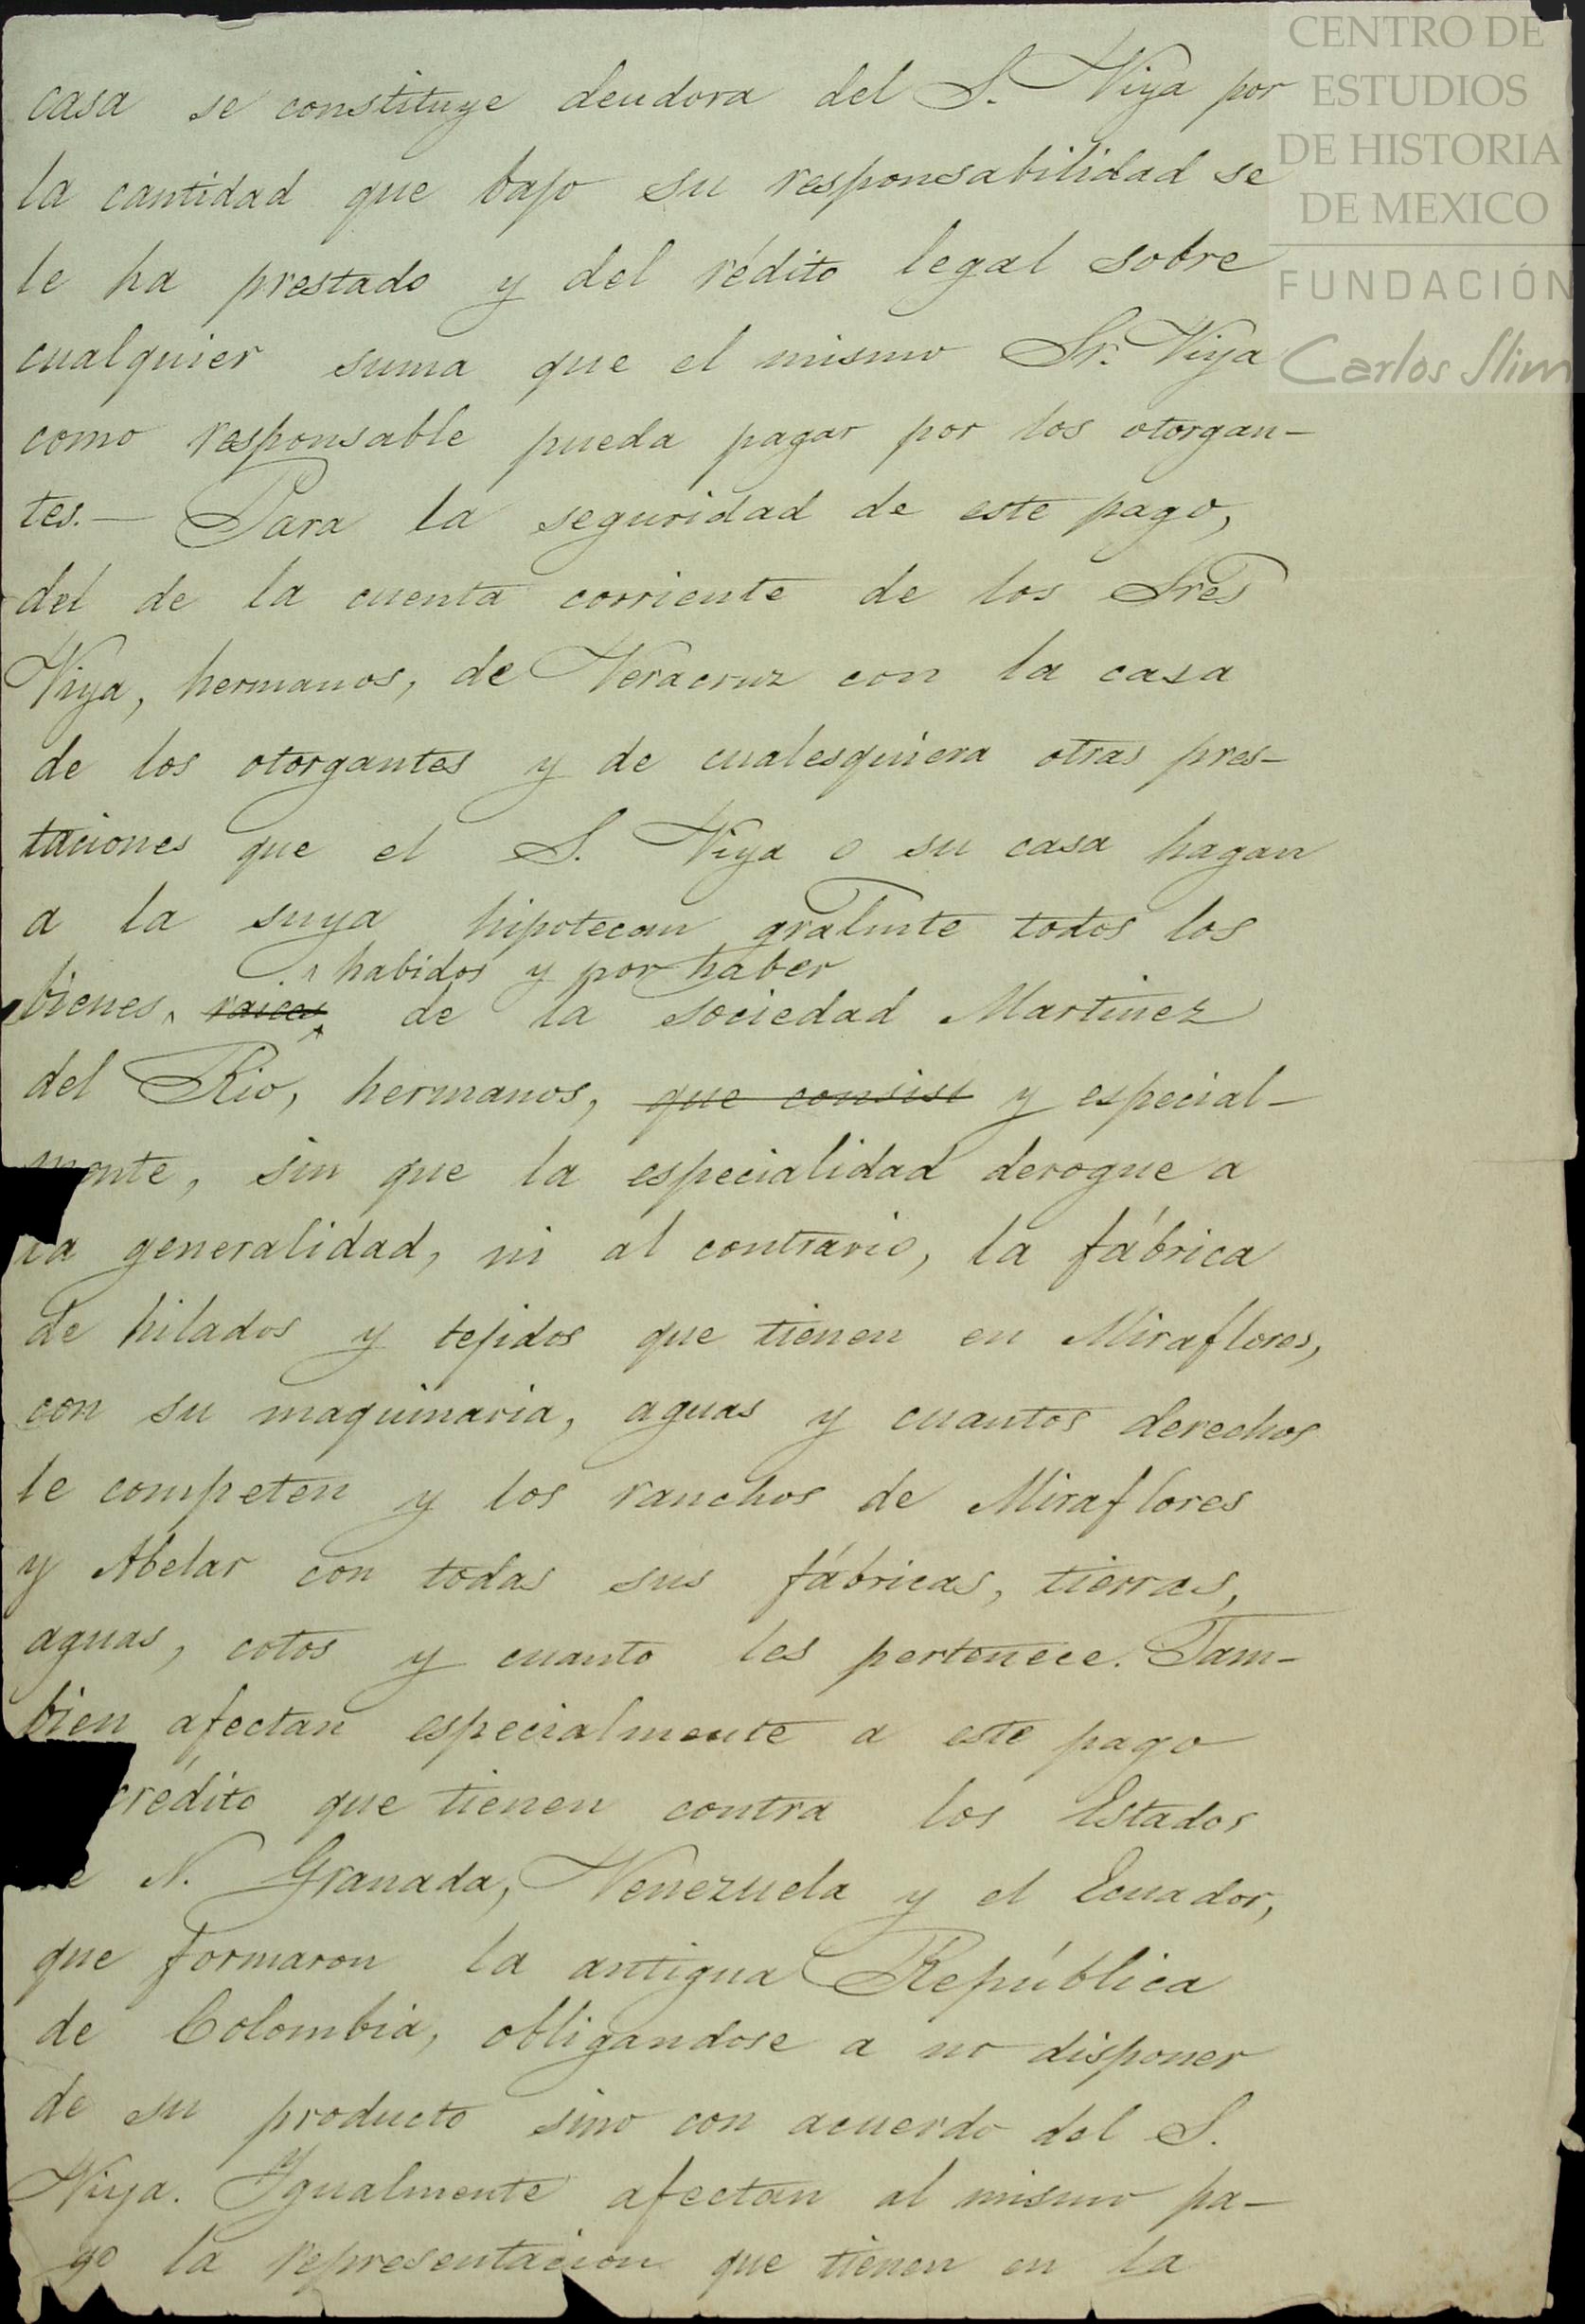 CENTRO DE
ESTUDIOS
DE HISTORIA
DE MEXICO
FUNDACIÓN
Carlos Slim
casa se constituye deudora del S. Viya por
la cantidad que bajo su responsabilidad se
le ha prestado y del rédito legal sobre
cualquier suma que el mismo Sr. Viya
como responsable pueda pagar por los otorgan-
tes.— Para la seguridad de este pago,
del de la cuenta corriente de los Sres
Viya, hermanos, de Veracruz con la casa
de los otorgantes y de cualesquiera otras pres-
taciones que el S. Viya o su casa hagan
a la suya hipotecan gralmte todos los
habidos y por haber
bienes raices de la sociedad Martinez
del Rio, hermanos, que consist y especial-
mente, sin que la especialidad derogue a
la generalidad, ni al contrario, la fábrica
de hilados y tejidos que tienen en Miraflores,
con su maquinaria, aguas y cuantos derechos
le competen y los ranchos de Miraflores
y Abelar con todas sus fábricas, tierras,
aguas, cotos y cuanto les pertenece. Tam-
bien afectan especialmente a este pago
crédito que tienen contra los Estados
de N. Granada, Venezuela y el Ecuador,
que formaron la antigua República
de Colombia, obligandose a no disponer
de su producto sino con acuerdo del S.
Viya. Igualmente afectan al mismo pa-
go la representacion que tienen en la